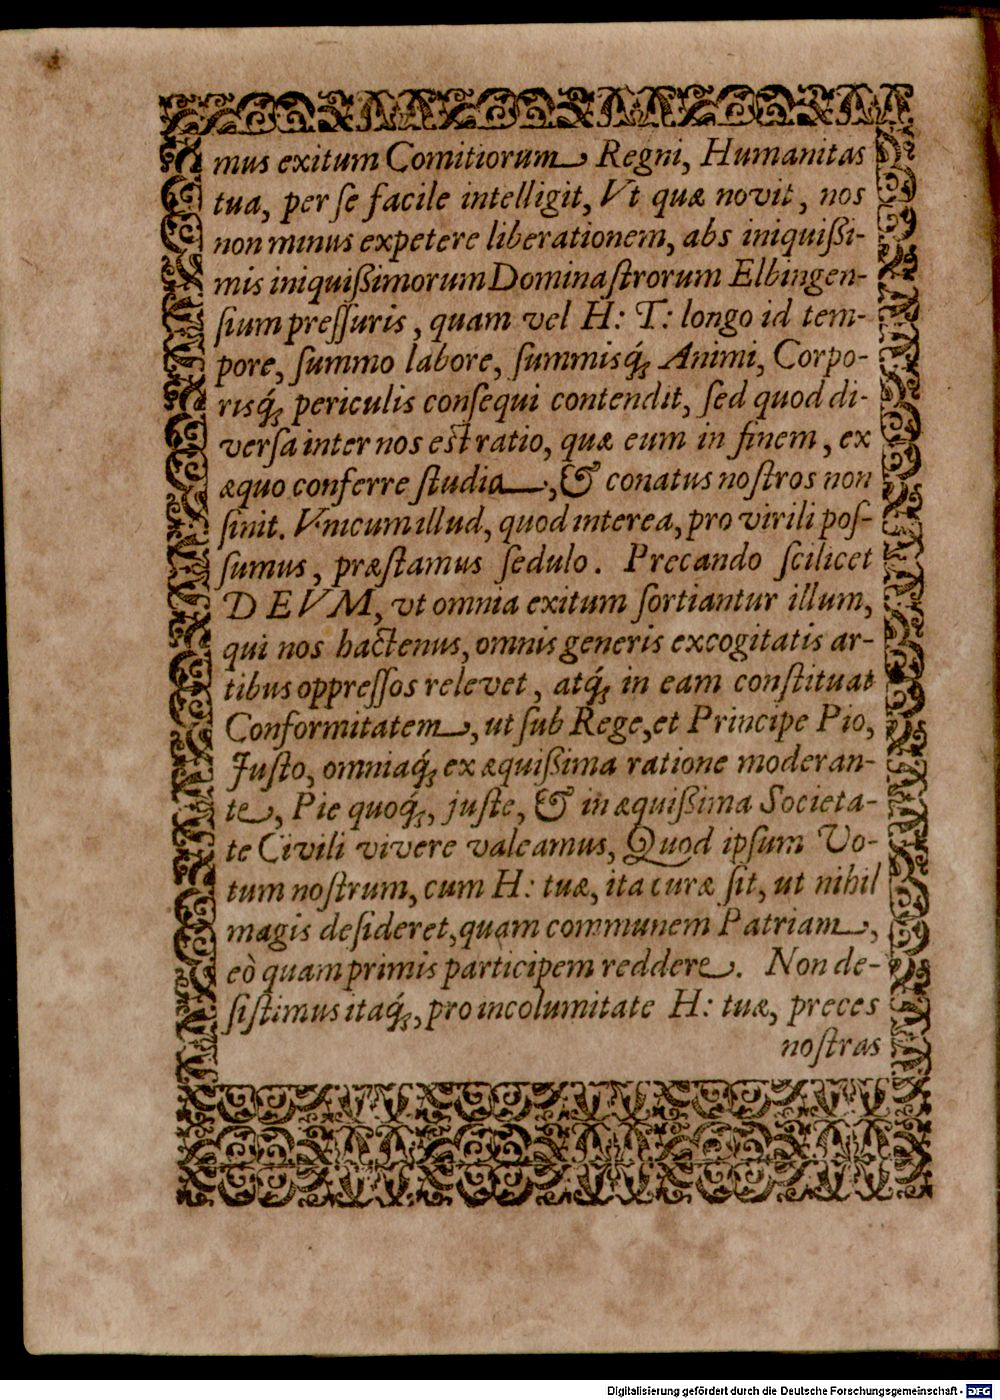 mus exitum Comitiorum Regni, Humanitas
tua, per ſe facile intelligit, Vt quæ novit, nos
non minus expetere liberationem, abs iniquißi-
mis iniquißimorum Dominaſtrorum Elbingen-
ſium preſſuris, quam vel H: T: longo id tem-
pore, ſummo labore, ſummisq́ꝫ Animi, Corpo-
risq́ꝫ periculis conſequi contendit, ſed quod di-
verſa inter nos eſt ratio, quæ eum in finem, ex
æquo conferre ſtudia, & conatus noſtros non
ſinit. Vnicum illud, quod interea, pro virili poſ-
ſumus, præſtamus ſedulo. Precando ſcilicet
DEVM, vt omnia exitum ſortiantur illum,
qui nos hactenus, omnis generis excogitatis ar-
tibus oppreſſos relevet, atq́ꝫ in eam conſtituat
Conformitatem, ut ſub Rege, et Principe Pio,
Juſto, omniaq́ꝫ ex æquißima ratione moderan-
te, Pie quoq́ꝫ, juſte, & in æquißima Societa-
te Civili vivere valeamus, Quod ipſum Vo-
tum noſtrum, cum H: tuæ, ita curæ ſit, ut nihil
magis deſideret, quam communem Patriam,
eò quam primis participem reddere. Non de-
ſiſtimus itaq́ꝫ, pro incolumitate H: tuæ, preces
noſtras
Digitalisierung gefördert durch die Deutsche Forschungsgemeinschaft - DFG